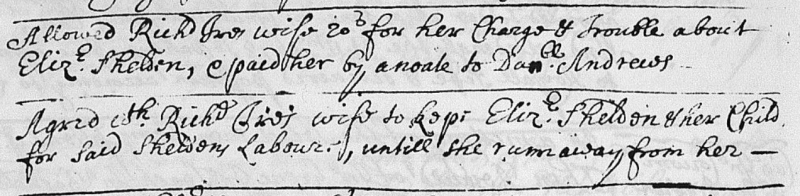 Allowed Richd Ires wife 20s for her Charge & trouble about
Eliz: Shelden, & paid her by anoate to Danll Andrews
Agred wth Richd Ires wife to kepe Eliz: Shelden & her Child
for said Sheldens Labours, untill she runn away from her —